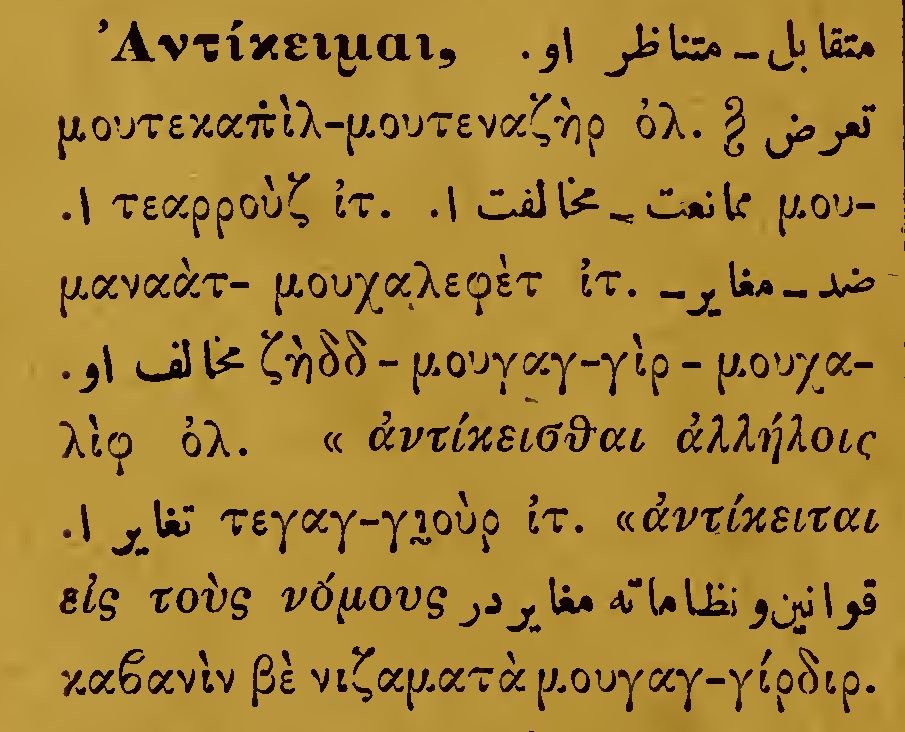 Ἀντίκειμαι, متقابل ـ متناظر او.
μουτεκαπὶλ-μουτεναζὴρ ὀλ. § تعرض
ا. τεαρροὺζ ἰτ. ممانعت ـ مخالفت ا. μου-
μαναὰτ- μουχαλεφὲτ ἰτ. ضد ـ مغاير ـ
مخالف او. ζὴδδ - μουγαγ-γὶρ - μουχα-
λὶφ ὀλ. « ἀντίκεισθαι ἀλλήλοις
تغاير ا. τεγαγ-γιοὺρ ἰτ. «ἀντίκειται
εἰς τοὺς νόμους قوانين و نظاماته مغاير در
καβανὶν βὲ νιζαματὰ μουγαγ-γίρδιρ.